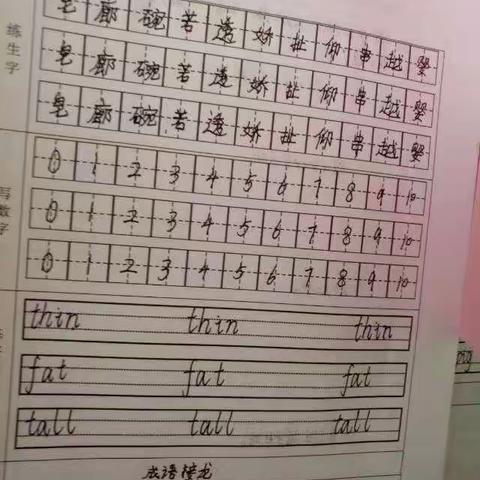 练生字
皂 廊 碗 若 透 娇 扯 仰 串 越 婴
皂 廊 碗 若 透 娇 扯 仰 串 越 婴
皂 廊 碗 若 透 娇 扯 仰 串 越 婴
写数字
0 1 2 3 4 5 6 7 8 9 10
0 1 2 3 4 5 6 7 8 9 10
0 1 2 3 4 5 6 7 8 9 10
thin thin thin
fat fat fat
tall tall tall
成语接龙